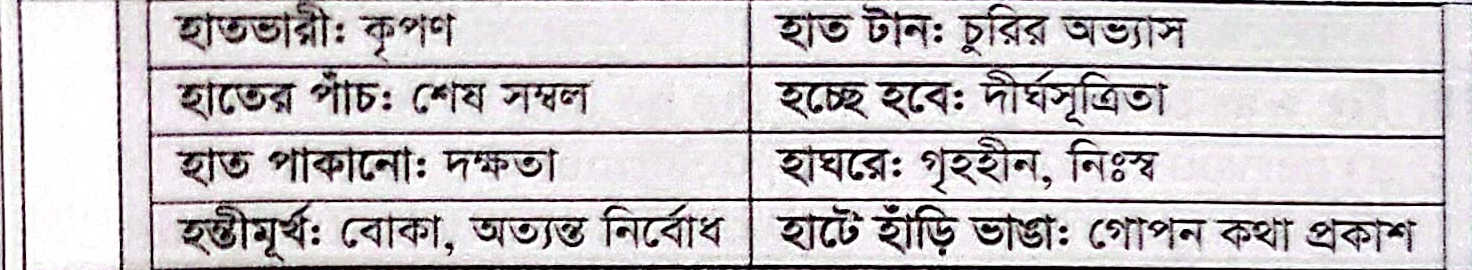 হাতভারী: কৃপণ হাত টান: চুরির অভ্যাস
হাতের পাঁচ: শেষ সম্বল হচ্ছে হবে: দীর্ঘসূত্রিতা
হাত পাকানো: দক্ষতা হাঘরে: গৃহহীন, নিঃস্ব
হস্তীমূর্খ: বোকা, অত্যন্ত নির্বোধ হাটে হাঁড়ি ভাঙা: গোপন কথা প্রকাশ